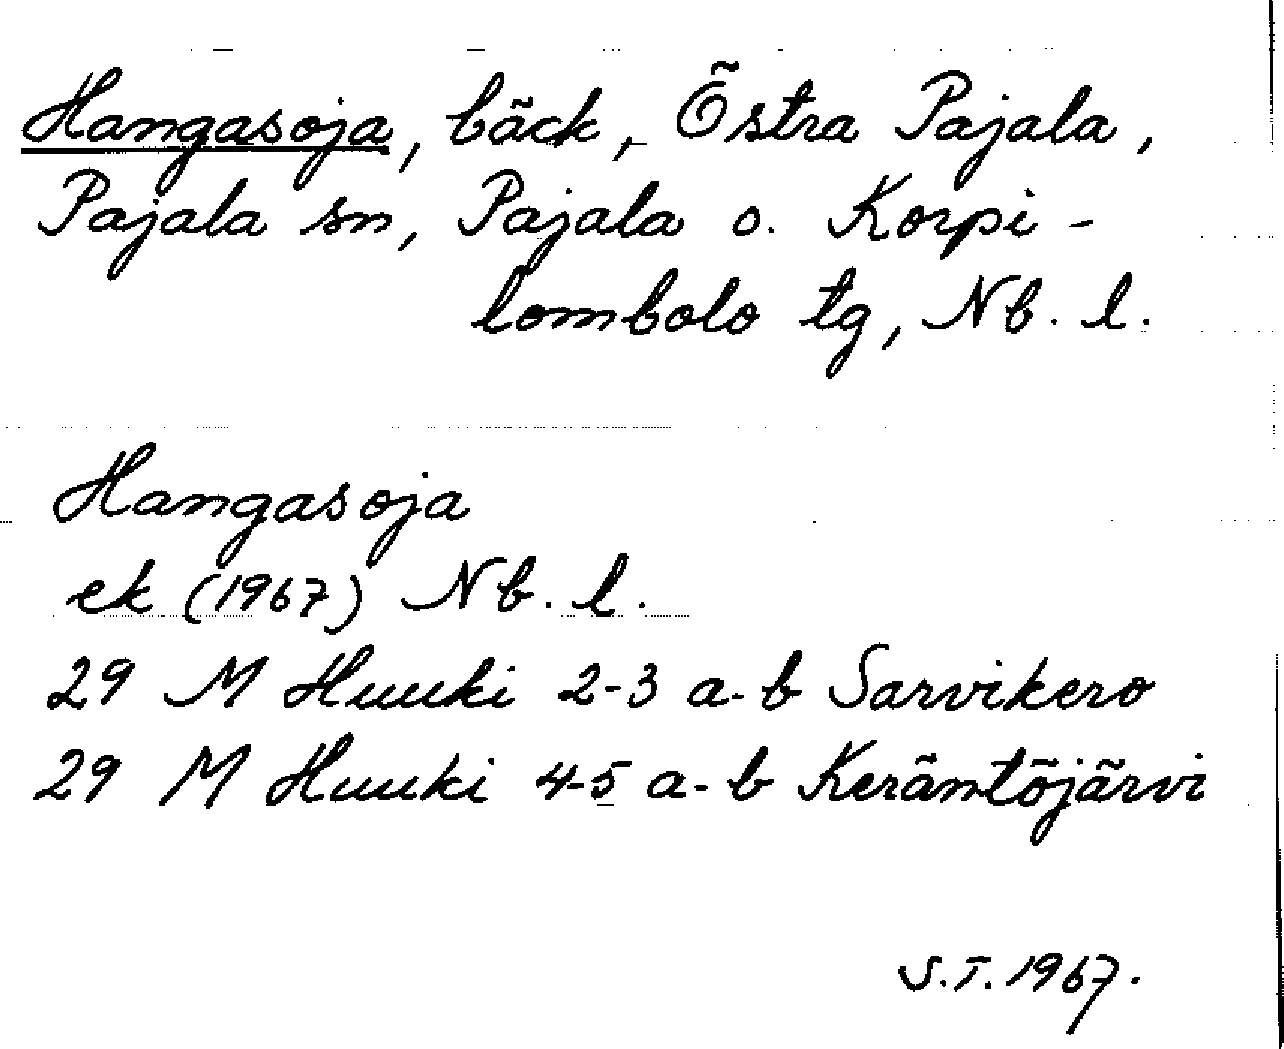 Hangasoja, bäck, Östra Pajala,
Pajala sn, Pajala o. Korpi-
lombolo tg, Nb. l.
Hangasoja
ek (1967) Nb. l.
29 M Huuki 2-3 a-b Sarvikero
29 M Huuki 4-5 a-b Keräntöjärvi
S.T. 1967.